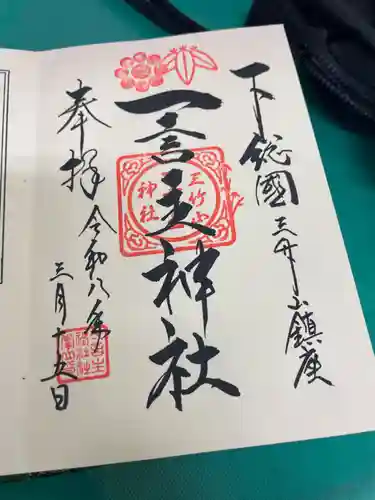 下総國三竹山鎮座
一言主神社
奉拝
令和八年
三月十五日
三竹山
神社